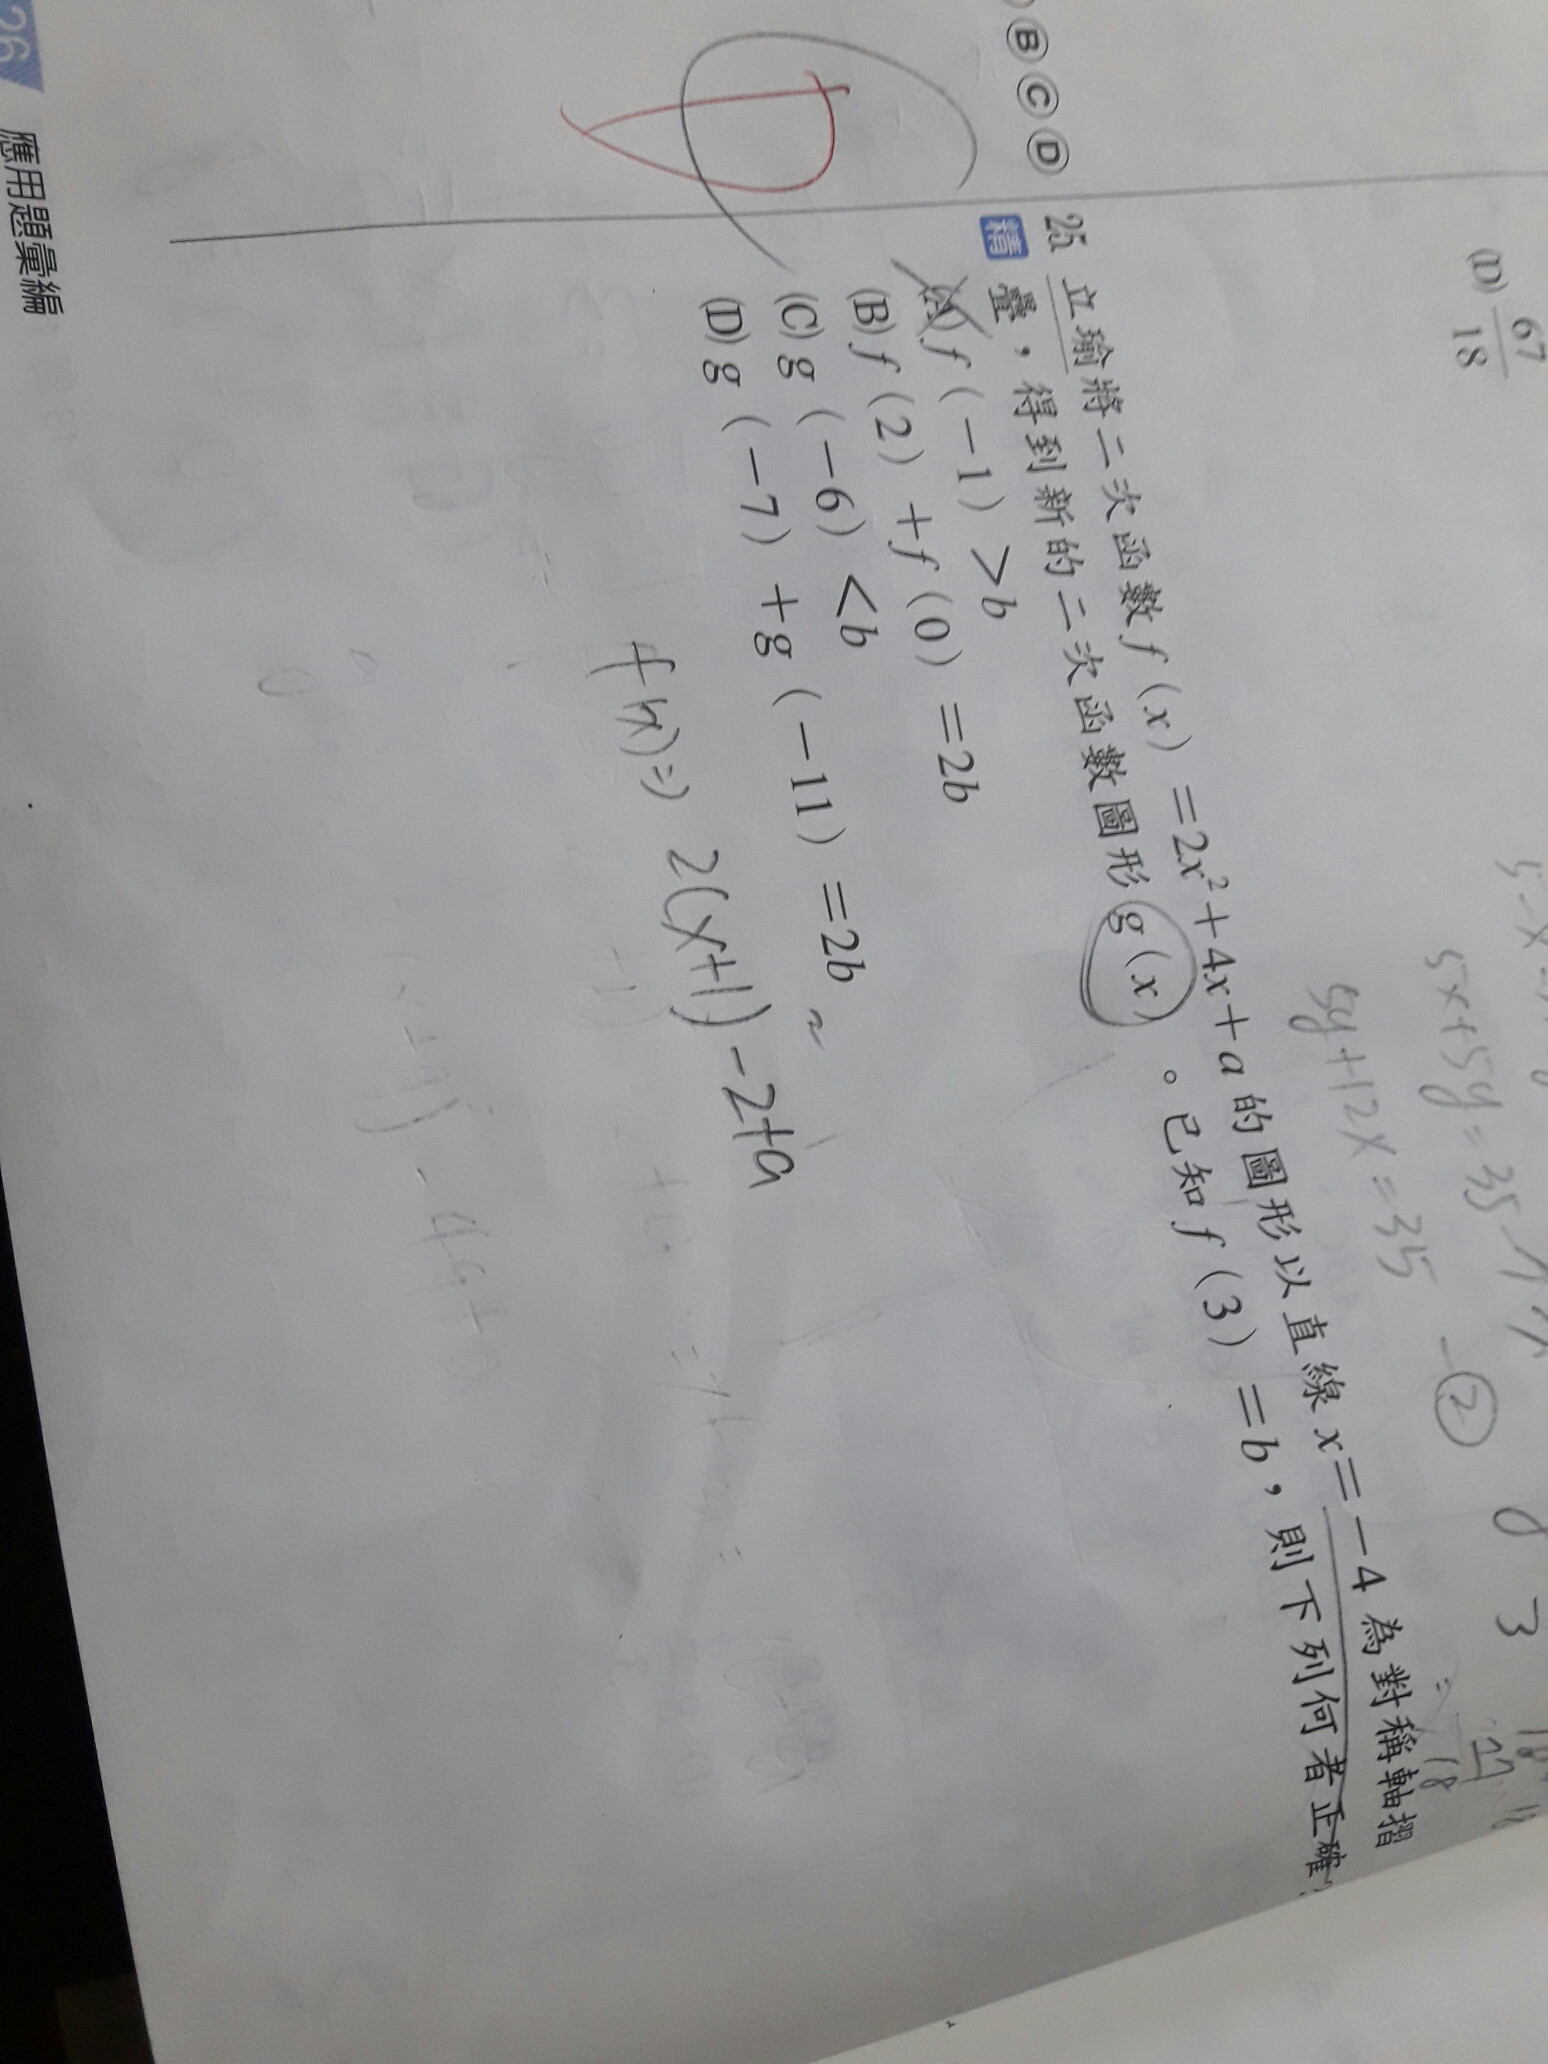 (D) 67/18
5x+5y=35
5y+12x=35 -②
Ⓑ Ⓒ Ⓓ
25 立瑜將二次函數 f(x)=2x²+4x+a 的圖形以直線 x=-4 為對稱軸摺
精 疊，得到新的二次函數圖形 g(x)。已知 f(3)=b，則下列何者正確？
(A) f(-1)>b
(B) f(2)+f(0)=2b
(C) g(-6)<b
(D) g(-7)+g(-11)=2b
D
f(x)=) 2(x+1)-2+a
26 應用題彙編